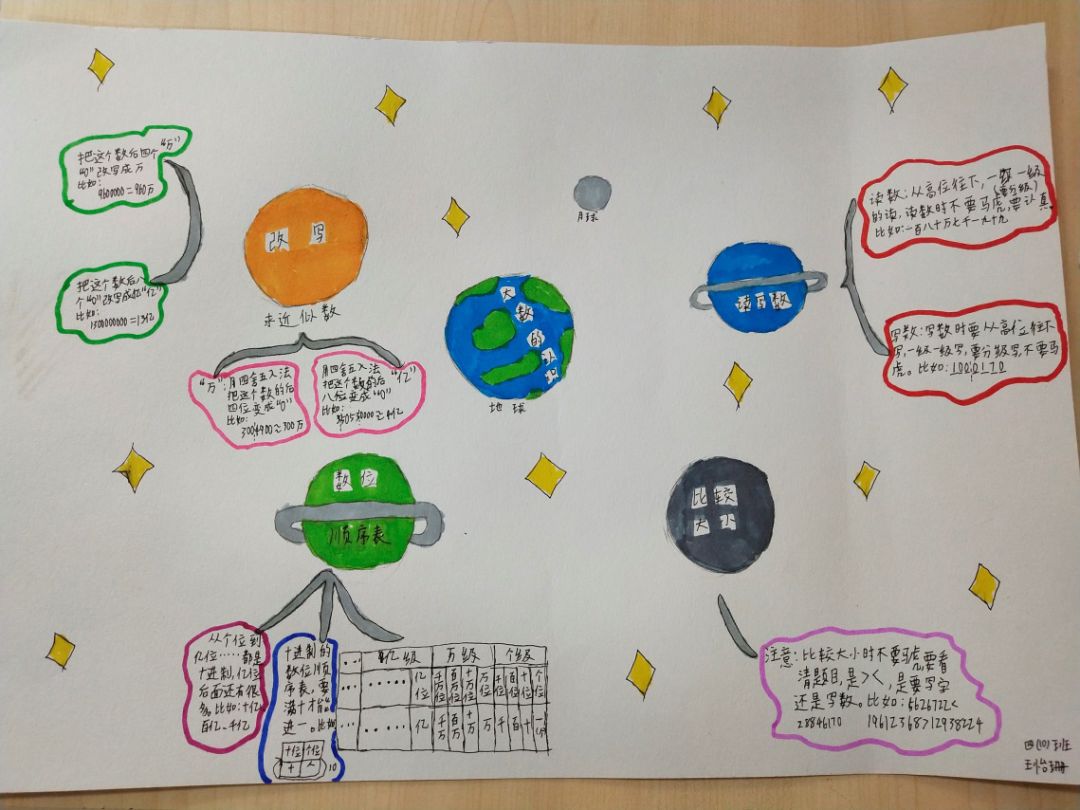 把这个数后四个"万"
"0"改写成万
比如:
9600000=960万
把这个数后八
个"0"改写成"亿"
比如:
1300000000=13亿
改写
求近似数
"万":用四舍五入法
把这个数的后
四位变成"0"
比如:
3004900≈300万
用四舍五入法"亿"
把这个数的后
八位变成"0"
比如:
月球
大数的认识
地球
读写数
读数:从高位往下,一级一级
(要分级)
的读,读数时不要马虎,要认真
比如:一百八十万七千一九十九
写数:写数时要从高位往下
写,一级一级写,要分级写不要马
虎。比如:1000170
数位
顺序表
从个位到
亿位……都是
十进制,亿位
后面还有很
多。比如:十亿
百亿、千亿
十进制的
数位顺
序表,要
满十才能"
进一。比如
十位 个位
10
… 亿级 万级 个级
… …… 亿位 千万位 百万位 十万位 万位 千位 百位 十位 个位
… …… 亿 千万 百万 十万 万 千 百 十 一
比较
大小
注意:比较大小时不要马虎,要看
清题目,是><,是要写字
还是写数。比如:6626722<
28846170 19612368712938224
四(10)班